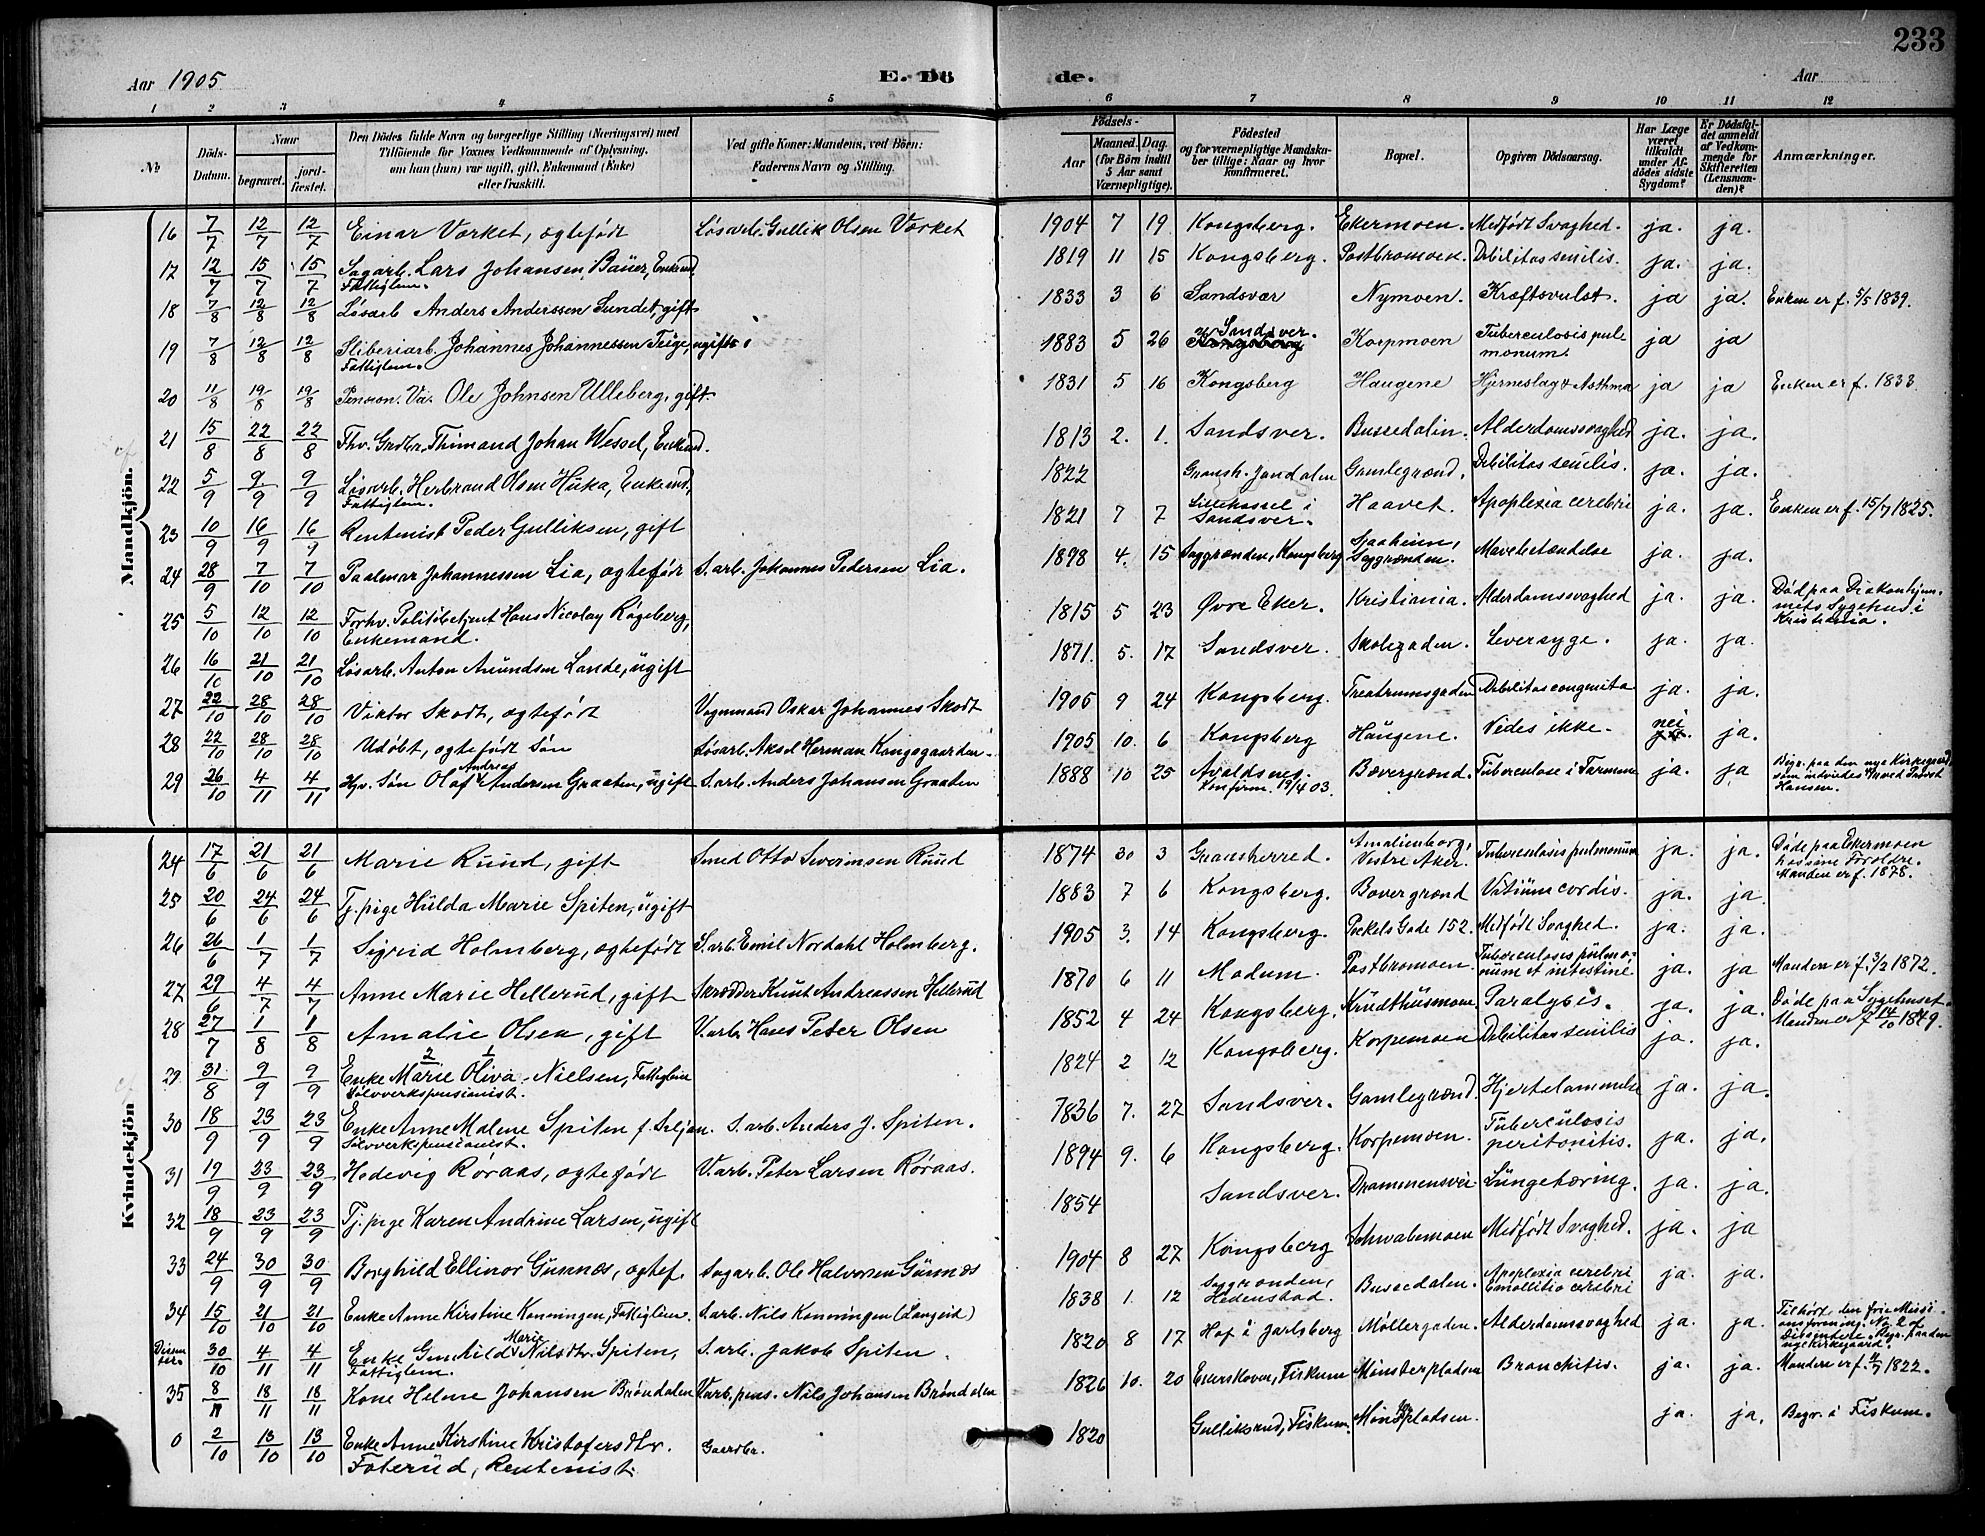 233
Aar 1905 E. Dö de. Aar
1 2 3 4 5 6 7 8 9 10 11 12
No Döds-Datum. Naar begravet. jord-fæstet. Den Dödes fulde Navn og borgerlige Stilling (Næringsvei) med Tilföiende for Voxnes Vedkommende af Oplysning, om han (hun) var ugift, gift, Enkemand (Enke) eller fraskilt. Ved gifte Koner: Mandens, ved Börn: Faderens Navn og Stilling. Födsels- Aar Maaned. Dag. (for Börn indtil 5 Aar samt Værnepligtige). Födested og for værnepligtige Mandskaber tillige: Naar og hvor konfirmeret. Bopæl. Opgiven Dödsaarsag. Har Læge været tilkaldt under Afdödes sidste Sygdom? Er Dödsfaldet anmeldt af Vedkommende for Skifteretten (Lensmanden)? Anmærkninger.
Mandkjön.
16 7/7 12/7 12/7 Einar Værket, ægtefødt Løsarb. Gullik Olsen Værket 1904 7 19 Kongsberg. Ekermoen. Medfødt Svaghed. ja. ja.
17 12/7 15/7 15/7 Sagarb. Lars Johansen Bauer, Enkemd. Fattiglem. 1819 11 15 Kongsberg. Postbromoen. Debilitas senilis. ja. ja.
18 7/8 12/8 12/8 Løsarb Anders Anderssen Sundet, gift 1833 3 6 Sandsvær Nymoen. Kræftsvulst. ja ja. Enken er f. 5/5 1839.
19 7/8 12/8 12/8 Sliberiarb. Johannes Johannessen Teige, ugift. Fattiglem. 1883 5 26 Sandsver. Korpmoen Tuberculosis pulmonum. ja ja
20 11/8 19/8 19/8 Pension. Va. Ole Johnsen Ulleberg, gift. 1831 5 16 Kongsberg Haugene Hjerneslag & Asthma ja ja Enken er f. 1833
21 15/8 22/8 22/8 Fhv. Grdbr. Thimand Johan Wessel, Enkemd. 1813 2. 1. Sandsver. Bussedalen. Alderdomssvaghed ja. ja.
22 5/9 9/9 9/9 Løsarb. Herbrand Olsen Huka, Enkemd, Fattiglem. 1822 Gransh. Jondalen Gamlegrænd. Debilitas senilis. ja. ja.
23 10/9 16/9 16/9 Rentenist Peder Gulliksen, gift 1821 7 7 Lillehassel i Sandsver. Haavet. Apoplexia cerebri ja. ja. Enken er f. 15/7 1825.
24 28/9 7/10 7/10 Paalmar Johannessen Lia, ægtefør S. arb. Johannes Pedersen Lia. 1898 4. 15 Saggrænden, Kongsberg Saggrænden. Mavebetændelse ja. ja.
25 5/10 12/10 12/10 Forhv. Politibetjent Hans Nicolay Røgeberg, Enkemand. 1815 5 23 Øvre Eker. Kristiania. Alderdomssvaghed ja. ja. Død paa Diakonhjemmets Sygehus i Kristiania.
26 16/10 21/10 21/10 Løsarb. Anton Amundsen Lande, ugift 1871. 5. 17 Sandsver. Skolegaden. Leversyge. ja. ja.
27 22/10 28/10 28/10 Viktor Skodt, ægtefødt Vognmand Oskar Johannes Skodt 1905 9 24 Kongsberg. Teatrumsgaden Debilitas congenita ja. ja.
28 22/10 28/10 28/10 Udøbt, ægtefødt Søn Løsarb. Aksel Herman Kongsgaarden. 1905 10. 6 Kongsberg Haugene. Vides ikke. nei ja.
29 26/10 4/11 4/11 Hjv. Søn Olaf Andreas Andersen Graaten, ugift S. arb. Anders Johansen Graaten 1888 10 25 Avaldsnes. Konfirm. 19/4 03. Bævergrænd. Tuberculose i Tarmene ja. ja Begr. paa den nye Kirkegaard, som indviedes ved Provst Hansen.
Kvindekjön
24 17/6 21/6 21/6 Marie Ruud, gift Smed Otto Severinsen Ruud 1874 30 3 Gransherred. Amalienborg, Vestre Aker. Tuberculosis pulmonum ja. ja. Døde paa Ekermoen hos sine Forældre. Manden er f. 1878.
25 20/6 24/6 24/6 Tj. pige Hulda Marie Spiten, ugift 1883 7 6 Kongsberg. Bævergrænd Vitium cordis. ja. ja.
26 26/6 1/7 1/7 Sigrid Holmberg, ægtefødt S. arb. Emil Nordahl Holmberg. 1905 3. 14 Kongsberg. Pockels Gade 152. Medfødt Svaghed. ja. ja.
27 29/6 4/7 4/7 Anne Marie Hellerud, gift Skrædder Knut Andreassen Hellerud 1870 6 11 Modum. Postbromoen. Tuberculosis pulmonum et intestine ja. ja Manden er f. 3/2 1872.
28 27/7 1/8 1/8 Amalie Olsen, gift V. arb. Hans Peter Olsen 1852 4 24 Kongsberg. Krudthusmoen. Paralysis. ja. ja. Døde paa Sygehuset. Manden er f. 14/10 1849.
29 31/8 9/9 9/9 Enke Marie Oliva Nielsen, Fattiglem Sølvverkspensionist. 1824 2 12 Kongsberg. Korpemoen Debilitas senilis ja. ja.
30 18/9 23/9 23/9 Enke Anne Malene Spiten f. Seljan. Sølvverkspensionist. S. arb. Anders J. Spiten. 1836 7. 27 Sandsver. Gamlegrænd. Hjertelammelse ja. ja.
31 19/9 23/9 23/9 Hedevig Røraas, ægtefødt V. arb. Peter Larsen Røraas. 1894 9. 6 Kongsberg. Korpemoen. Tuberculosis peritonitis. ja. ja.
32 18/9 23/9 23/9 Tj. pige Karen Andrine Larsen, ugift 1854 Sandsver. Drammensvei Lungetæring. ja. ja.
33 24/9 30/9 30/9 Borghild Ellinor Gunnæs, ægtef. Sagarb. Ole Halvorsen Gunnæs 1904 8 27 Kongsberg Schwabemoen Medfødt Svaghed. ja. ja
34 15/10 21/10 21/10 Enke Anne Kirstine Konningen, Fattiglem. S. arb. Nils Konningen (Langeid) 1838 1. 12 Saggrænden, Hedenstad. Bussedalen. Apoplexia cerebri Emollitio cerebri ja. ja.
Dissenter. 30/10 4/11 4/11 Enke Gunhild Marie Nilsdtr. Spiten, Fattiglem. S. arb. Jakob Spiten. 1820 8 17 Hof i Jarlsberg Møllergaden. Alderdomssvaghed ja. ja. Tilhørt den frie Missionsforening. No 2 af Dissentere. Begr. paa den nye Kirkegaard.
35 8/11 18/11 18/11 Kone Helene Johansen Brøndalen V. arb. pens. Nils Johansen Brøndalen 1826 10. 20 Fiskum Münsterpladsen Bronchitis. ja. ja. Manden er f. 1822.
0 2/10 13/10 13/10 Enke Anne Kirstine Kristofersdtr. Foterud, Rentenist. Gaardbr. 1820 Gulliksrud, Fiskum. Münsterpladsen. ja. ja, Begr. i Fiskum.